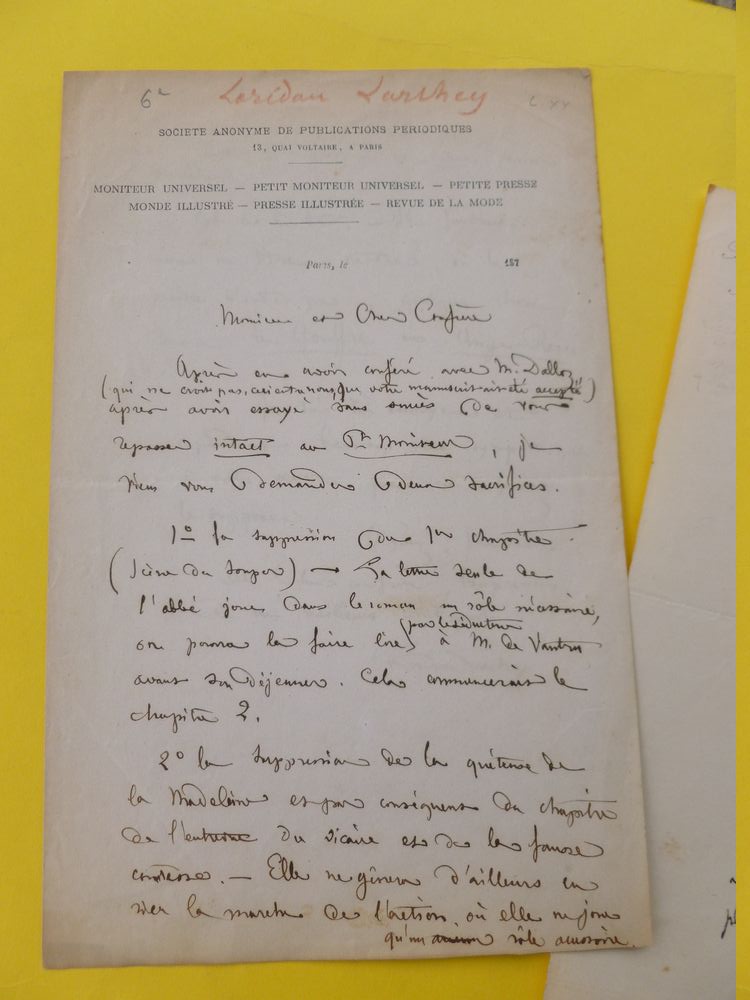 6e Loredan Larchey
SOCIETE ANONYME DE PUBLICATIONS PERIODIQUES
13, QUAI VOLTAIRE, A PARIS
MONITEUR UNIVERSEL — PETIT MONITEUR UNIVERSEL — PETITE PRESSE
MONDE ILLUSTRÉ — PRESSE ILLUSTRÉE — REVUE DE LA MODE
Paris, le 187
Monsieur et Cher Confrère
Après en avoir conféré avec M. Dalloz
(qui ne croit pas, que votre manuscrit ait été accepté)
après avoir essayé sans succès de vous
repasser intact au Pt Moniteur, je
viens vous demander deux sacrifices.
1o la suppression du 1er chapitre
(Scène du Souper) — La lettre seule de
l'abbé joue dans le roman un rôle nécessaire,
on pourra la faire lire (par le séducteur) à M. de
avant son déjeuner. Cela commencerait le
chapitre 2.
2o la suppression de la quêteuse de
la Madeleine et par conséquent du chapitre
de l'entrevue du vicaire et de la fausse
comtesse. — Elle ne gênera d'ailleurs en
rien la marche de l'action, où elle ne joue
qu'un rôle accessoire.